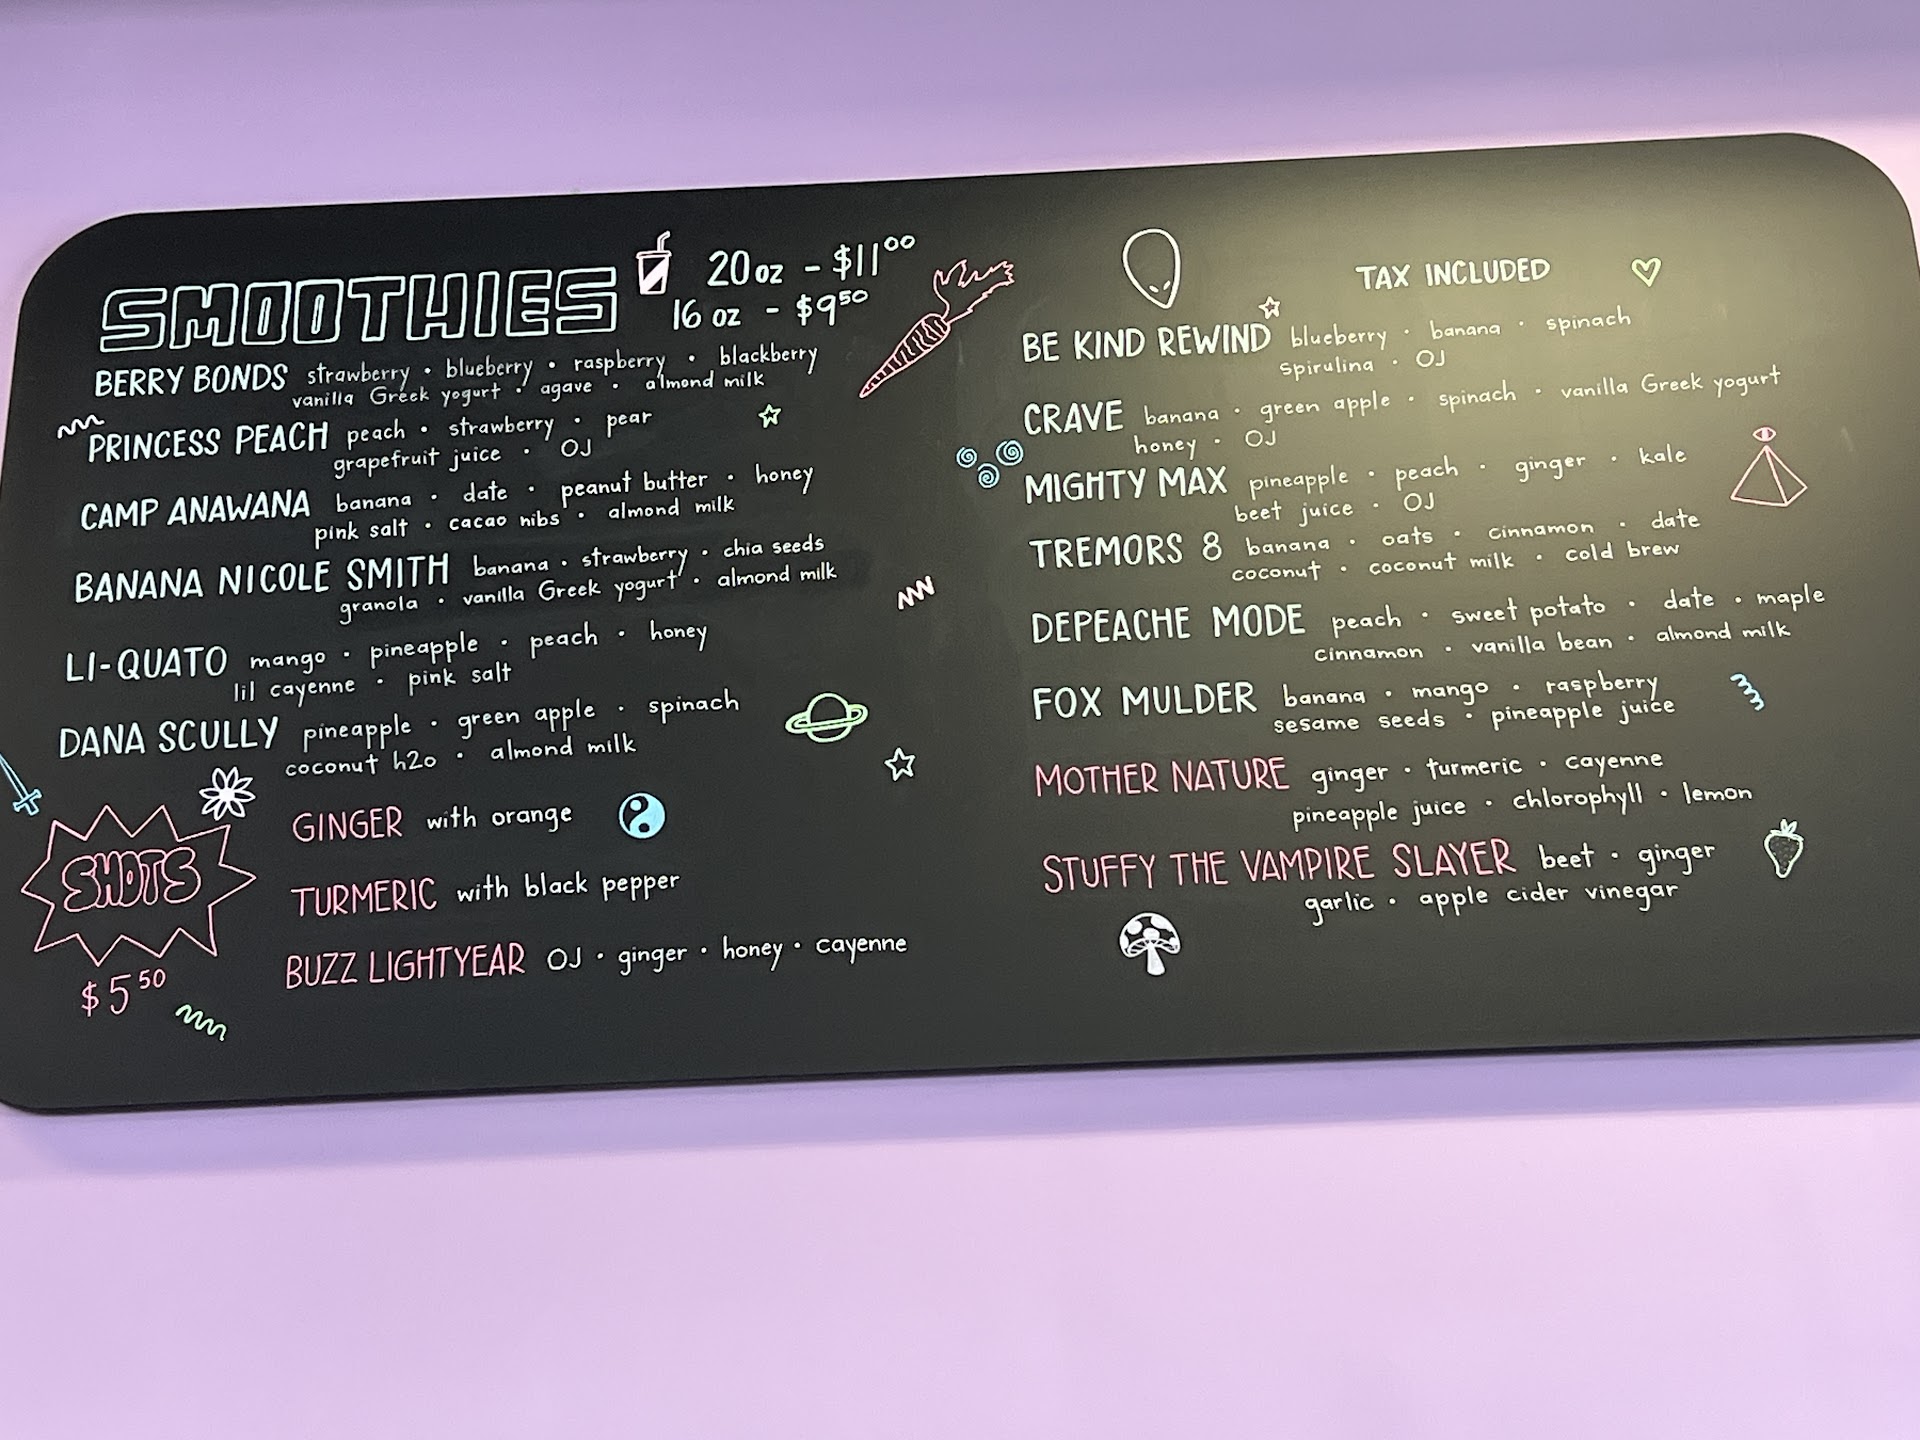 SMOOTHIES
20 oz - $11⁰⁰
16 oz - $9⁵⁰
BERRY BONDS strawberry · blueberry · raspberry · blackberry
vanilla Greek yogurt · agave · almond milk
PRINCESS PEACH peach · strawberry · pear
grapefruit juice · OJ
CAMP ANAWANA banana · date · peanut butter · honey
pink salt · cacao nibs · almond milk
BANANA NICOLE SMITH banana · strawberry · chia seeds
granola · vanilla Greek yogurt · almond milk
LI-QUATO mango · pineapple · peach · honey
lil cayenne · pink salt
DANA SCULLY pineapple · green apple · spinach
coconut h2o · almond milk
SHOTS
$5⁵⁰
GINGER with orange
TURMERIC with black pepper
BUZZ LIGHTYEAR OJ · ginger · honey · cayenne
TAX INCLUDED
BE KIND REWIND blueberry · banana · spinach
spirulina · OJ
CRAVE banana · green apple · spinach · vanilla Greek yogurt
honey · OJ
MIGHTY MAX pineapple · peach · ginger · kale
beet juice · OJ
TREMORS 8 banana · oats · cinnamon · date
coconut · coconut milk · cold brew
DEPEACHE MODE peach · sweet potato · date · maple
cinnamon · vanilla bean · almond milk
FOX MULDER banana · mango · raspberry
sesame seeds · pineapple juice
MOTHER NATURE ginger · turmeric · cayenne
pineapple juice · chlorophyll · lemon
STUFFY THE VAMPIRE SLAYER beet · ginger
garlic · apple cider vinegar